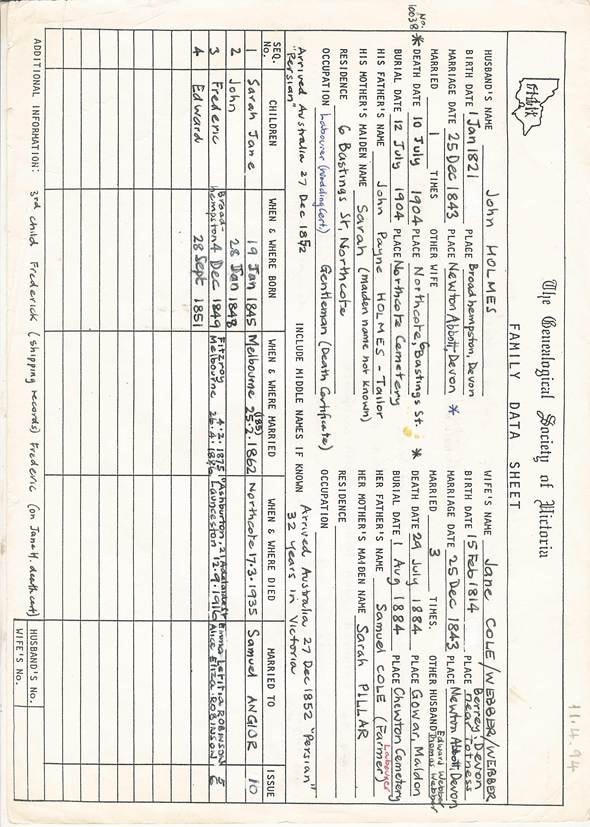 11.4.94
G.S.V.
The Genealogical Society of Victoria
FAMILY DATA SHEET
HUSBAND'S NAME John HOLMES
BIRTH DATE 1 Jan 1821 PLACE Broadhempston, Devon
MARRIAGE DATE 25 Dec 1843 PLACE Newton Abbott, Devon *
MARRIED 1 TIMES OTHER WIFE
No. 10038 * DEATH DATE 10 July 1904 PLACE Northcote, 6 Bastings St. *
BURIAL DATE 12 July 1904 PLACE Northcote Cemetery
HIS FATHER'S NAME John Payne HOLMES - Tailor
HIS MOTHER'S MAIDEN NAME Sarah (maiden name not known)
RESIDENCE 6 Bastings St, Northcote
OCCUPATION Labourer (Wedding Cert) Gentleman (Death Certificate)
Arrived Australia 27 Dec 1852
"Persian"
WIFE'S NAME Jane COLE/WEBBER/WEBBER
BIRTH DATE 15 Feb 1814 PLACE Berrey, Devon near Totness
MARRIAGE DATE 25 Dec 1843 PLACE Newton Abbott, Devon
MARRIED 3 TIMES. OTHER HUSBAND Edward Webber Thomas Webber
DEATH DATE 29 July 1884 PLACE Gowar, Maldon
BURIAL DATE 1 Aug 1884 PLACE Chewton Cemetery
HER FATHER'S NAME Samuel COLE (Farmer) Labourer
HER MOTHER'S MAIDEN NAME Sarah PILLAR
RESIDENCE
OCCUPATION
Arrived Australia 27 Dec 1852 "Persian"
32 years in Victoria
INCLUDE MIDDLE NAMES IF KNOWN
SEQ. No. CHILDREN WHEN & WHERE BORN WHEN & WHERE MARRIED WHEN & WHERE DIED MARRIED TO ISSUE
1 Sarah Jane 19 Jan 1845 Melbourne 25.2.1862 Northcote 17.3.1935 Samuel ANGIOR 10
2 John 28 Jan 1848
3 Frederic Broadhempston 4 Dec 1849 Fitzroy 4.2.1875 "Ashburton", 21 Emma Letitia ROBINSON 5
4 Edward 28 Sept 1851 Melbourne 26.4.1876 Launceston 12.9.1916 Alice Eliza ROBINSON 6
ADDITIONAL INFORMATION: 3rd child Frederick (shipping records) Frederic (on Jane H. death cert)
HUSBAND'S No.
WIFE'S No.